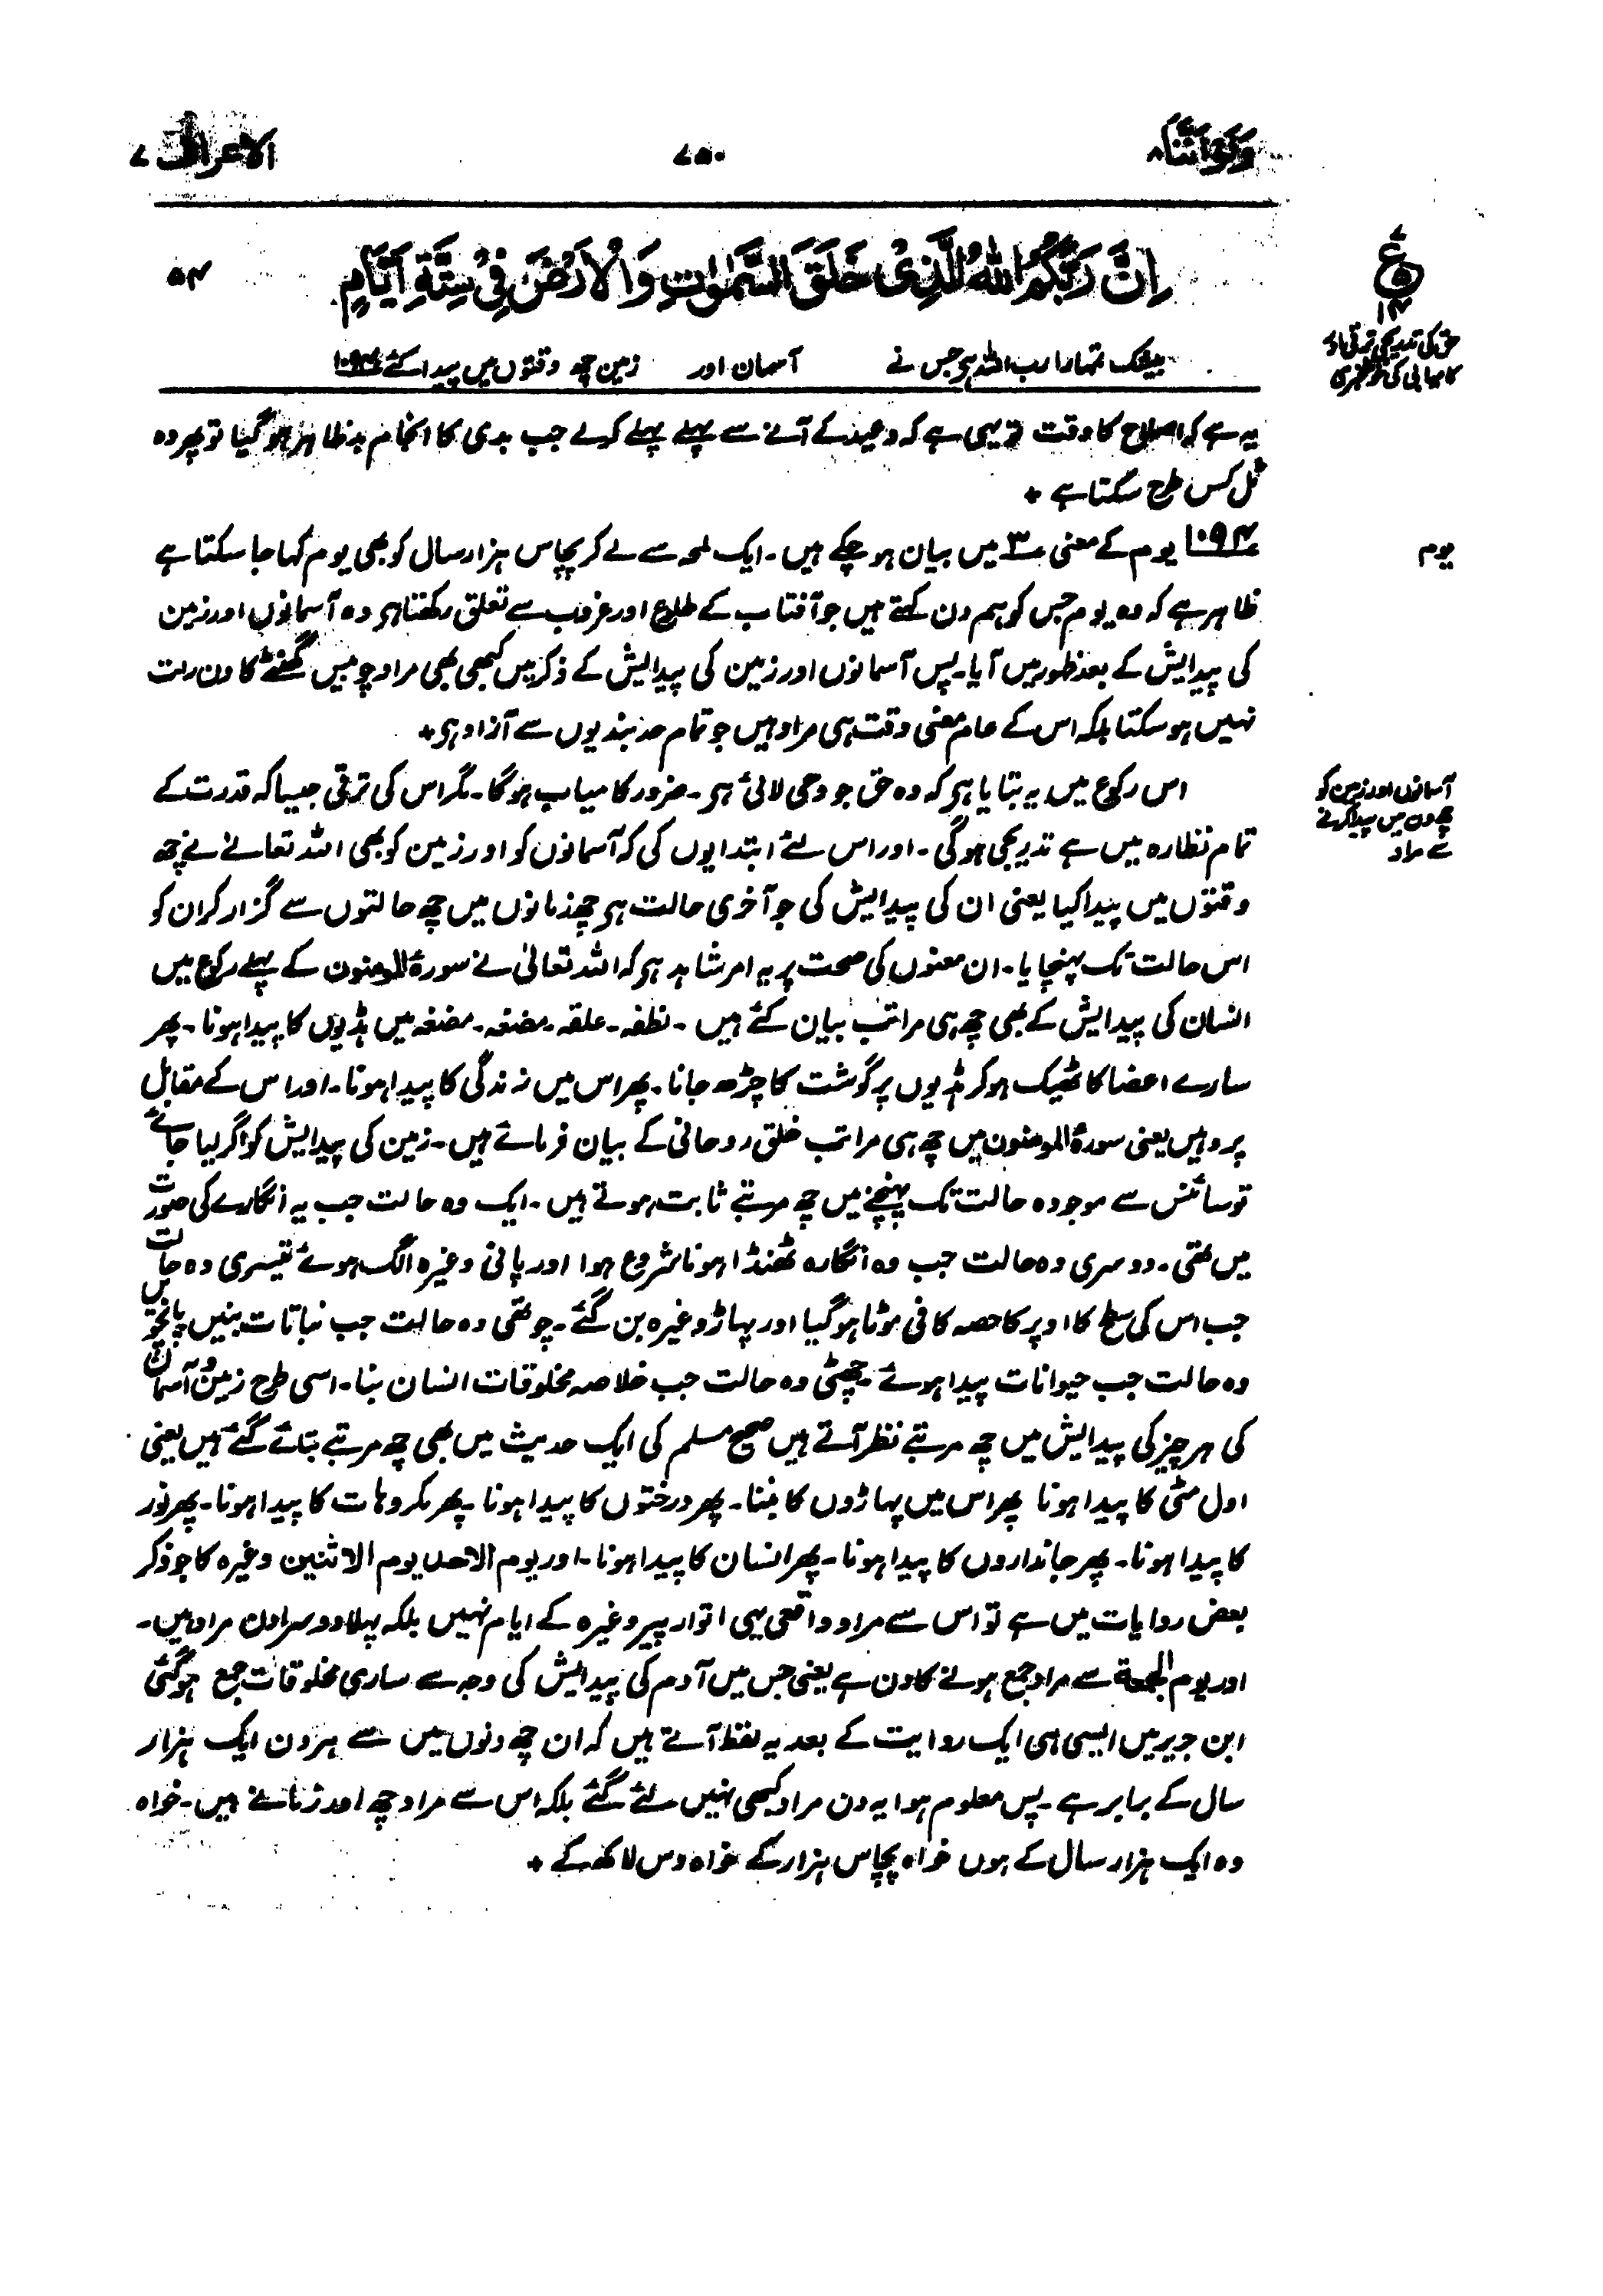 ولواننا ۸
۷۵۰
الاعراف ۷
اِنَّ رَبَّكُمُ اللّٰهُ الَّذِیْ خَلَقَ السَّمٰوٰتِ وَالْاَرْضَ فِیْ سِتَّةِ اَیَّامٍ
۵۴
ع
۱۴
حق کی تدریجی ترقی اور
کامیابی کی خوشخبری
بیشک تمہارا رب اللہ ہی جس نے آسمان اور زمین چھ وقتوں میں پیدا کئے ۱۰۹۴
یہ ہے کہ اصلاح کا وقت تو یہی ہے کہ وعید کے آنے سے پہلے پہلے کرلے جب بدی کا انجام بد ظاہر ہو گیا تو پھر وہ
ٹل کس طرح سکتا ہے +
یوم
۱۰۹۴ یوم کے معنی ۳ میں بیان ہو چکے ہیں۔ ایک لمحہ سے لے کر پچاس ہزار سال کو بھی یوم کہا جا سکتا ہے
ظاہر ہے کہ وہ یوم جس کو ہم دن کہتے ہیں جو آفتاب کے طلوع اور غروب سے تعلق رکھتا ہی وہ آسمانوں اور زمین
کی پیدایش کے بعد ظہور میں آیا۔ پس آسمانوں اور زمین کی پیدایش کے ذکر میں کبھی بھی مراد چوبیس گھنٹے کا دن رات
نہیں ہو سکتا بلکہ اس کے عام معنی وقت ہی مراد ہیں جو تمام حد بندیوں سے آزاد ہی +
آسمانوں اور زمین کو
چھ دن میں پیدا کرنے
سے مراد
اس رکوع میں یہ بتایا ہی کہ وہ حق جو وحی لائی ہی۔ ضرور کامیاب ہوگا۔ مگر اس کی ترقی جیسا کہ قدرت کے
تمام نظارہ میں ہے تدریجی ہوگی۔ اور اس لئے ابتدا یوں کی کہ آسمانوں کو اور زمین کو بھی اللہ تعالےٰ نے چھ
وقتوں میں پیدا کیا یعنی ان کی پیدایش کی جو آخری حالت ہی چھ زمانوں میں چھ حالتوں سے گزار کر ان کو
اس حالت تک پہنچایا۔ ان معنوں کی صحت پر یہ امر شاہد ہی کہ اللہ تعالیٰ نے سورۂ المومنون کے پہلے رکوع میں
انسان کی پیدایش کے بھی چھ ہی مراتب بیان کئے ہیں۔ نطفہ۔ علقہ۔ مضغہ۔ مضغہ میں ہڈیوں کا پیدا ہونا۔ پھر
سارے اعضا کا ٹھیک ہو کر ہڈیوں پر گوشت کا چڑھ جانا۔ پھر اس میں زندگی کا پیدا ہونا۔ اور اس کے مقابل
پر وہیں یعنی سورۂ المومنون میں چھ ہی مراتب خلق روحانی کے بیان فرمائے ہیں۔ زمین کی پیدایش کو اگر لیا جائے
تو سائنس سے موجودہ حالت تک پہنچنے میں چھ مرتبے ثابت ہوتے ہیں۔ ایک وہ حالت جب یہ انگارے کی صورت
میں تھی۔ دوسری وہ حالت جب وہ انگارہ ٹھنڈا ہونا شروع ہوا اور پانی وغیرہ الگ ہوئے تیسری وہ حالت
جب اس کی سطح کا اوپر کا حصہ کافی موٹا ہو گیا اور پہاڑ وغیرہ بن گئے۔ چوتھی وہ حالت جب نباتات بنیں پانچویں
وہ حالت جب حیوانات پیدا ہوئے۔ چھٹی وہ حالت جب خلاصہ مخلوقات انسان بنا۔ اسی طرح زمین و آسمان
کی ہر چیز کی پیدایش میں چھ مرتبے نظر آتے ہیں صحیح مسلم کی ایک حدیث میں بھی چھ مرتبے بتائے گئے ہیں یعنی
اول مٹی کا پیدا ہونا پھر اس میں پہاڑوں کا بننا۔ پھر درختوں کا پیدا ہونا۔ پھر مکروہات کا پیدا ہونا۔ پھر نور
کا پیدا ہونا۔ پھر جانداروں کا پیدا ہونا۔ پھر انسان کا پیدا ہونا۔ اور یوم الاحد یوم الاثنین وغیرہ کا جو ذکر
بعض روایات میں ہے تو اس سے مراد واقعی یہی اتوار پیر وغیرہ کے ایام نہیں بلکہ پہلا دوسرا دن مراد ہیں۔
اور یوم الجمعة سے مراد جمع ہونے کا دن ہے یعنی جس میں آدم کی پیدایش کی وجہ سے ساری مخلوقات جمع ہو گئی
ابن جریر میں ایسی ہی ایک روایت کے بعد یہ لفظ آتے ہیں کہ ان چھ دنوں میں سے ہر دن ایک ہزار
سال کے برابر ہے۔ پس معلوم ہوا یہ دن مراد کبھی نہیں لئے گئے بلکہ اس سے مراد چھ زمانے ہیں۔ خواہ
وہ ایک ہزار سال کے ہوں خواہ پچاس ہزار کے خواہ دس لاکھ کے +